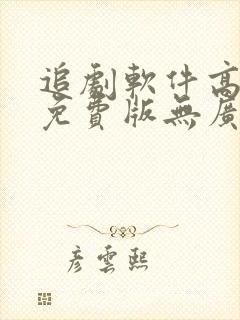 追劇軟件高
免費版無廣
彦雲熙